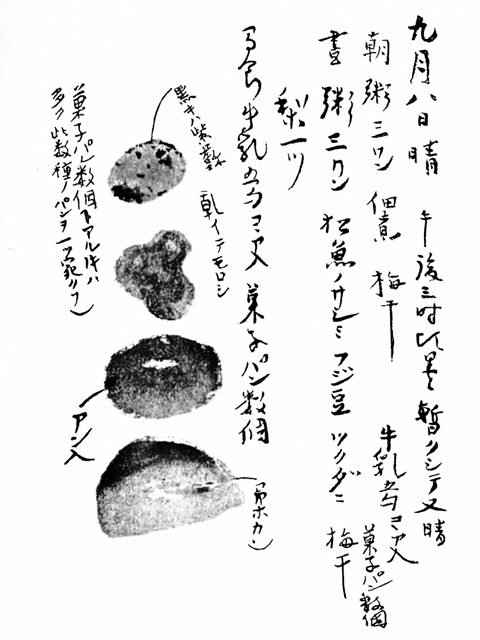 九月八日 晴 午後三時頃曇 暫クシテ又晴
朝 粥三ワン 佃煮 梅干 牛乳五勺コヽア入
菓子パン数個
昼 粥三ワン 松魚ノサシミ フジ豆 ツクダニ 梅干
梨一ツ
間食 牛乳五勺コヽア入 菓子パン数個
黒キハ紫蘇
乾イテモロシ
アン入
菓子パン数個トアルトキハ
多ク此数種ノパンヲ一ツ宛クフ